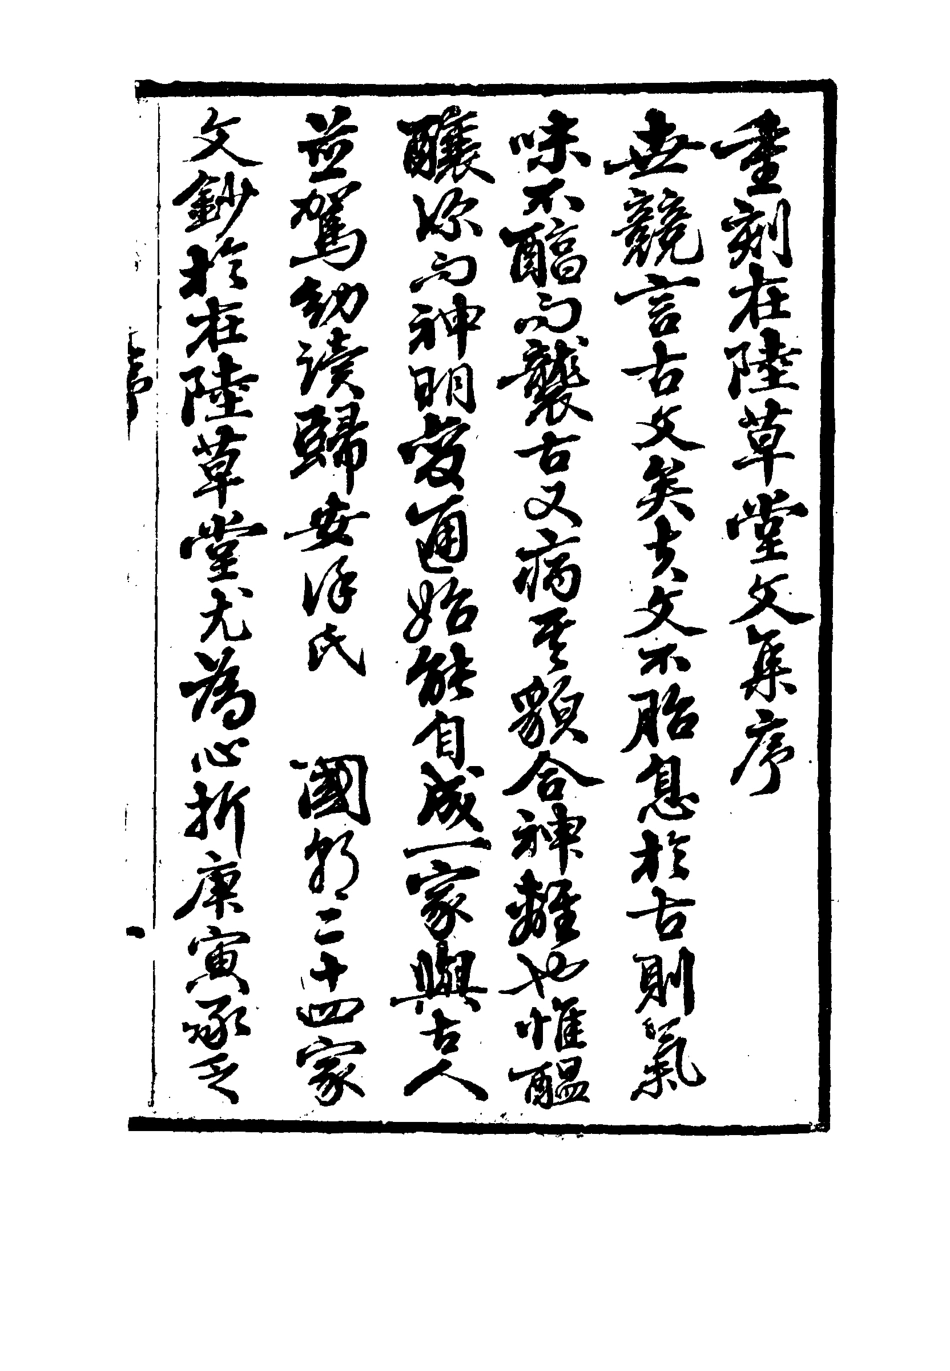 重刻在陸草堂文集序
世競言古文矣夫文不胎息於古則氣
味不醇而襲古又病其貌合神離也惟醞
釀深而神明變通始能自成一家與古人
並駕幼讀歸安徐氏 國朝二十四家
文鈔於在陸草堂尤為心折庚寅承乏
序
一